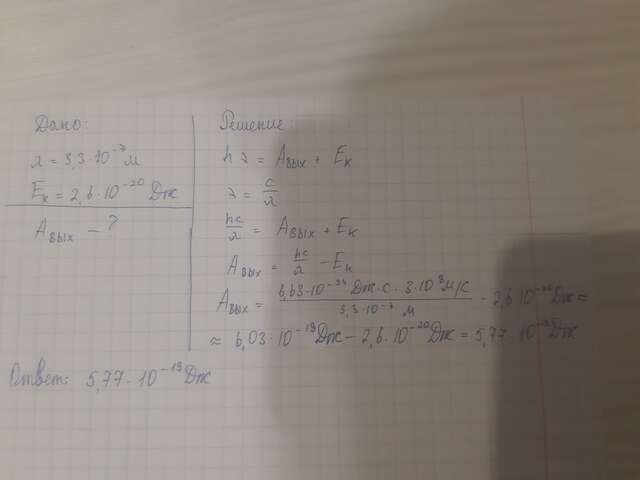 Дано:
λ = 3,3·10⁻⁷ м
Eₖ = 2,6·10⁻²⁰ Дж
Aвых – ?
Решение:
hν = Aвых + Eₖ
ν = c/λ
hc/λ = Aвых + Eₖ
Aвых = hc/λ – Eₖ
Aвых = 6,63·10⁻³⁴ Дж·с · 3·10⁸ м/с / 3,3·10⁻⁷ м - 2,6·10⁻²⁰ Дж ≈
≈ 6,03·10⁻¹⁹ Дж – 2,6·10⁻²⁰ Дж = 5,77·10⁻¹⁹ Дж
Ответ: 5,77·10⁻¹⁹ Дж